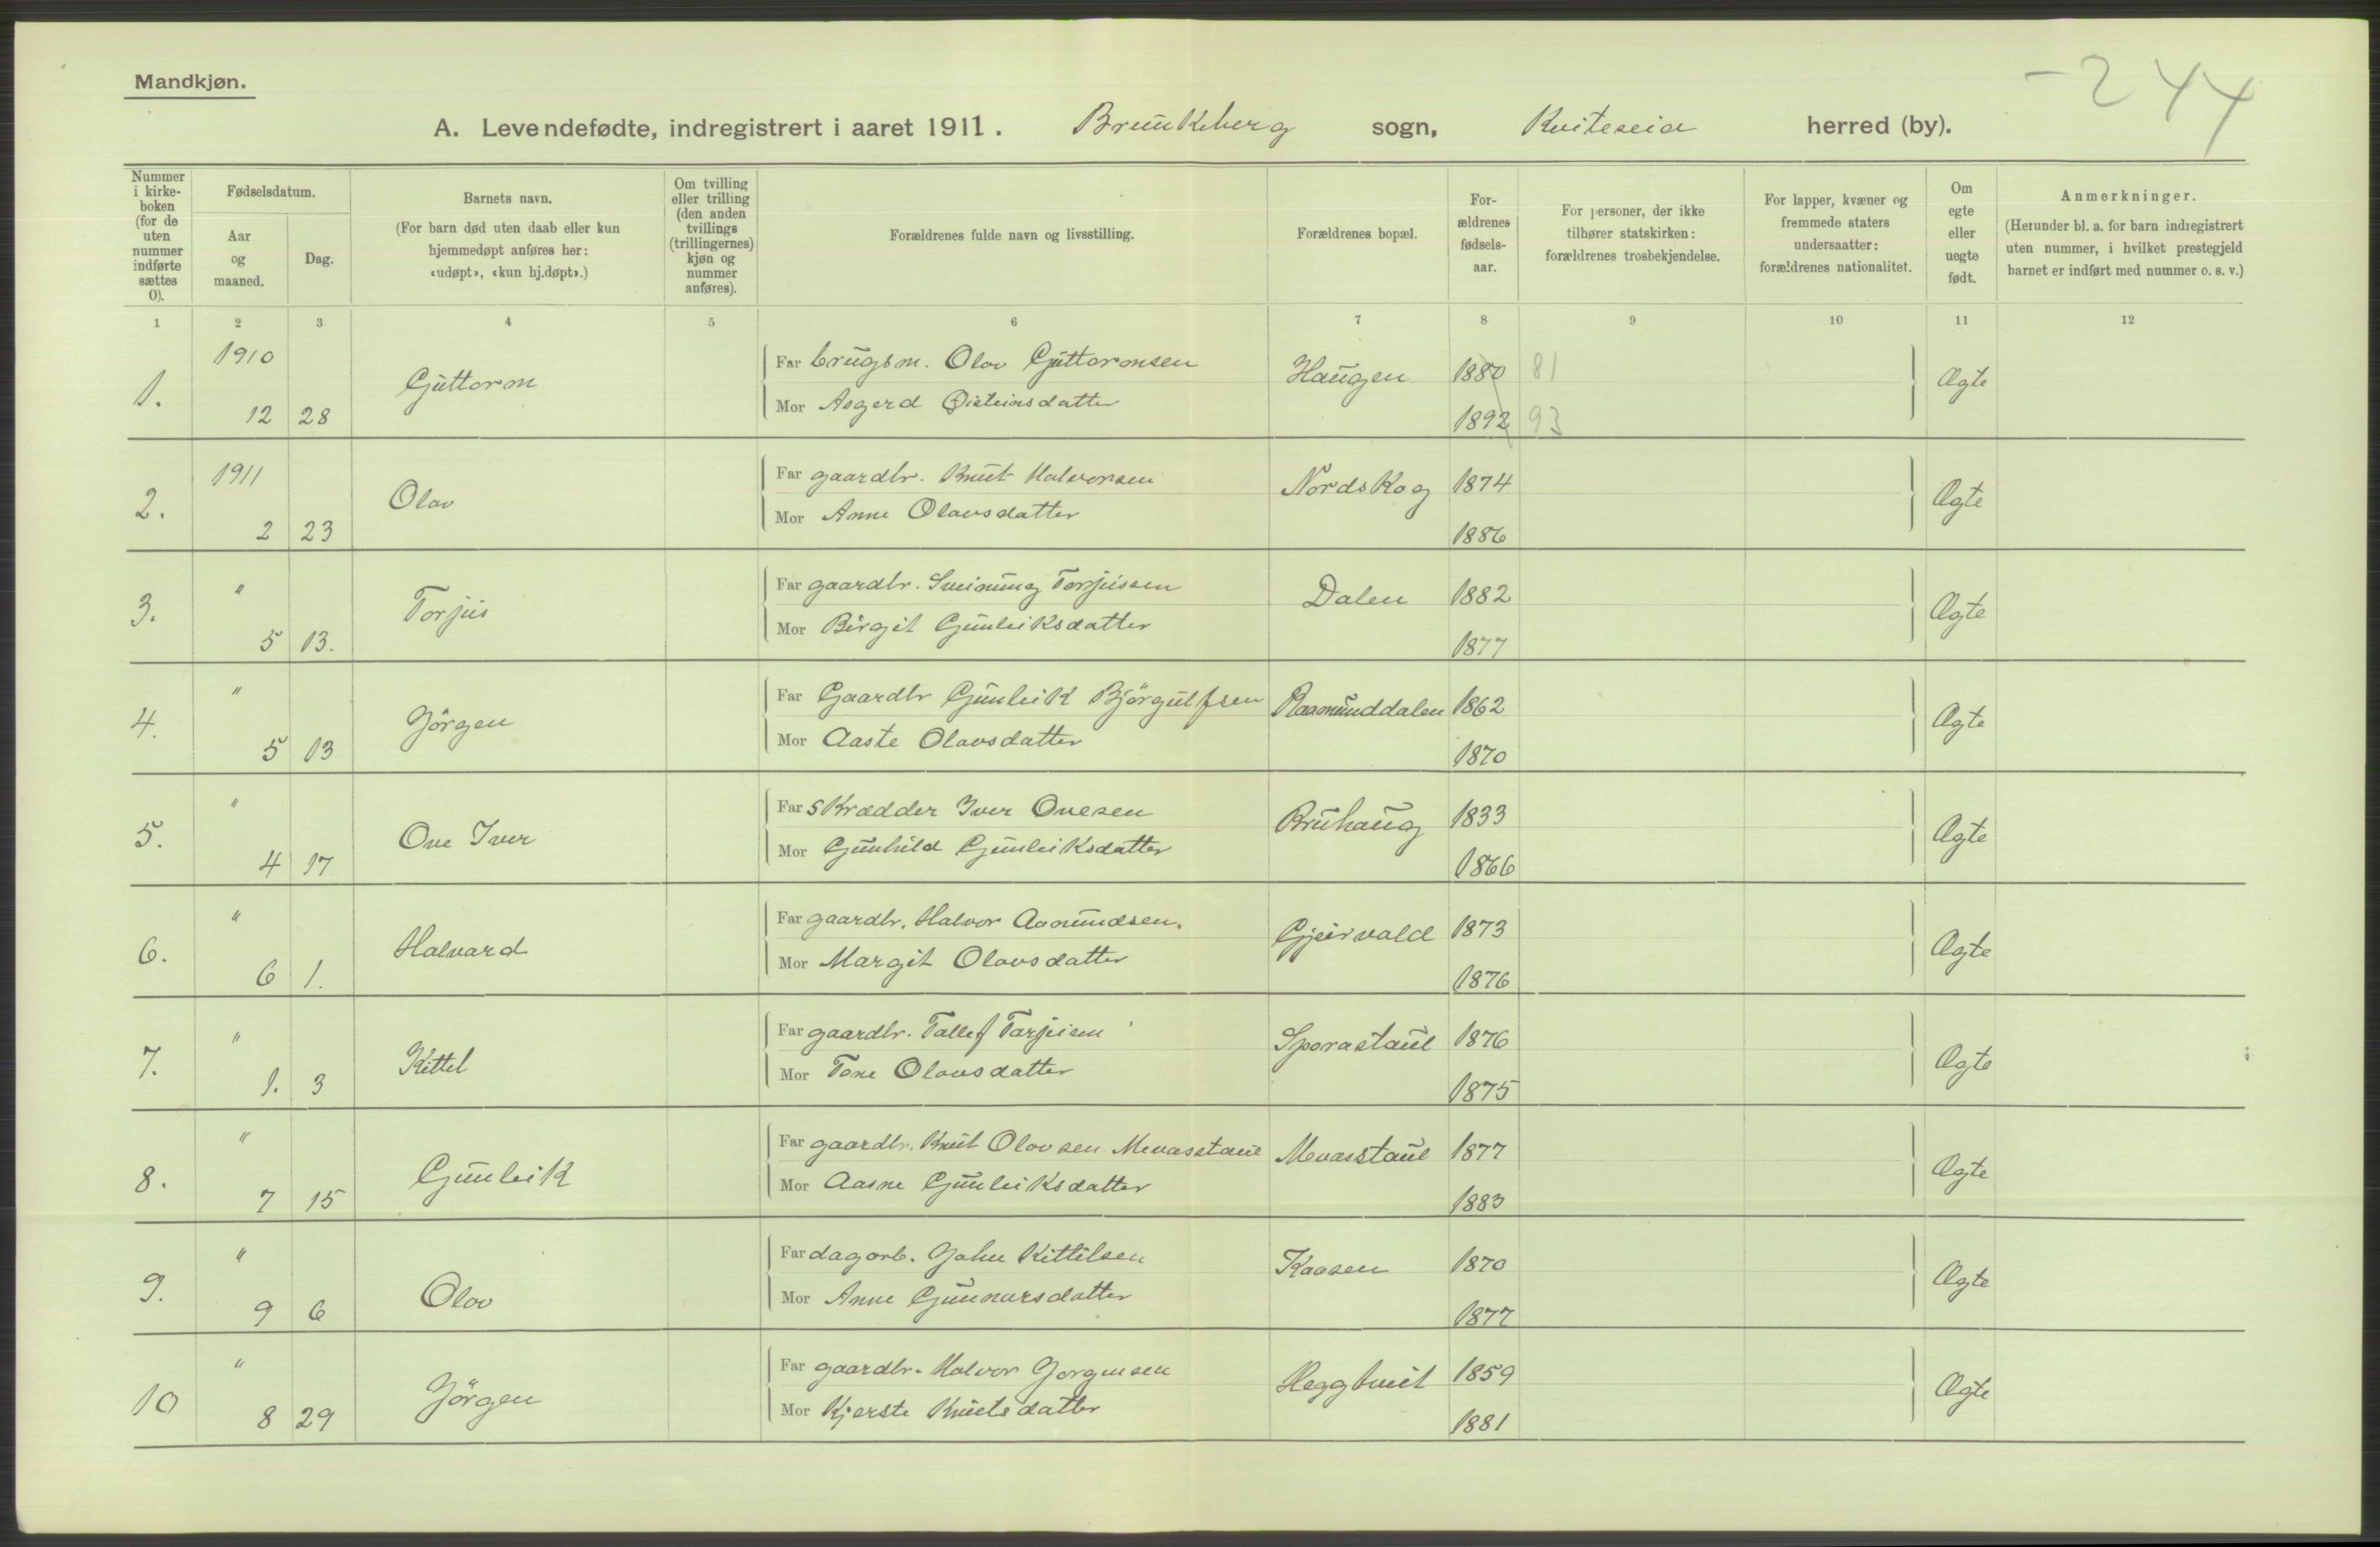 Mandkjøn.
- 244
A. Levendefødte, indregistrert i aaret 1911. Brunkeberg sogn, Kviteseid herred (by).
Nummer i kirke-boken (for de uten nummer indførte sættes 0).
Fødselsdatum.
Aar og maaned.
Dag.
Barnets navn.
(For barn død uten daab eller kun hjemmedøpt anføres her: «udøpt», «kun hj.døpt».)
Om tvilling eller trilling (den anden tvillings (trillingernes) kjøn og nummer anføres).
Forældrenes fulde navn og livsstilling.
Forældrenes bopæl.
For-ældrenes fødsels-aar.
For personer, der ikke tilhører statskirken: forældrenes trosbekjendelse.
For lapper, kvæner og fremmede staters undersaatter: forældrenes nationalitet.
Om egte eller uegte født.
Anmerkninger.
(Herunder bl. a. for barn indregistrert uten nummer, i hvilket prestegjeld barnet er indført med nummer o. s. v.)
1 2 3 4 5 6 7 8 9 10 11 12
1. 1910 12 28 Guttorm
Far brugsm. Olov Guttormsen Haugen 1880 81 Ægte
Mor Asgerd Øisteinsdatter 1892 93
2. 1911 2 23 Olav
Far gaardbr. Knut Halvorsen Nordskog 1874 Ægte
Mor Anne Olavsdatter 1886
3. " 5 13. Torjus
Far gaardbr. Sveinung Torjussen Dalen 1882 Ægte
Mor Birgit Gunleiksdatter 1877
4. " 5 13 Jörgen
Far Gaardbr Gunleik Björgulfsen Raamunddalen 1862 Ægte
Mor Aaste Olavsdatter 1870
5. " 4 17 Ove Iver
Far Skrædder Iver Ovesen Bruhaug 1833 Ægte
Mor Gunhild Gunleiksdatter 1866
6. " 6 1. Halvard
Far gaardbr. Halvor Aamundsen. Gjeirvald 1873 Ægte
Mor Margit Olavsdatter 1876
7. " 1. 3 Kittel
Far gaardbr. Tallef Tarjeisen Sporastaul 1876 Ægte
Mor Tone Olavsdatter 1875
8. " 7 15 Gunleik
Far gaardbr. Knut Olovsen Mevasstaul Mevasstaul 1877 Ægte
Mor Aasne Gunleiksdatter 1883
9. " 9 6 Olov
Far dagarb. John Kittilsen Kaasen 1870 Ægte
Mor Anne Gunnarsdatter 1877
10 " 8 29 Jörgen
Far gaardbr. Halvor Jorgensen Heggtveit 1859 Ægte
Mor Kjerste Knutsdatter 1881